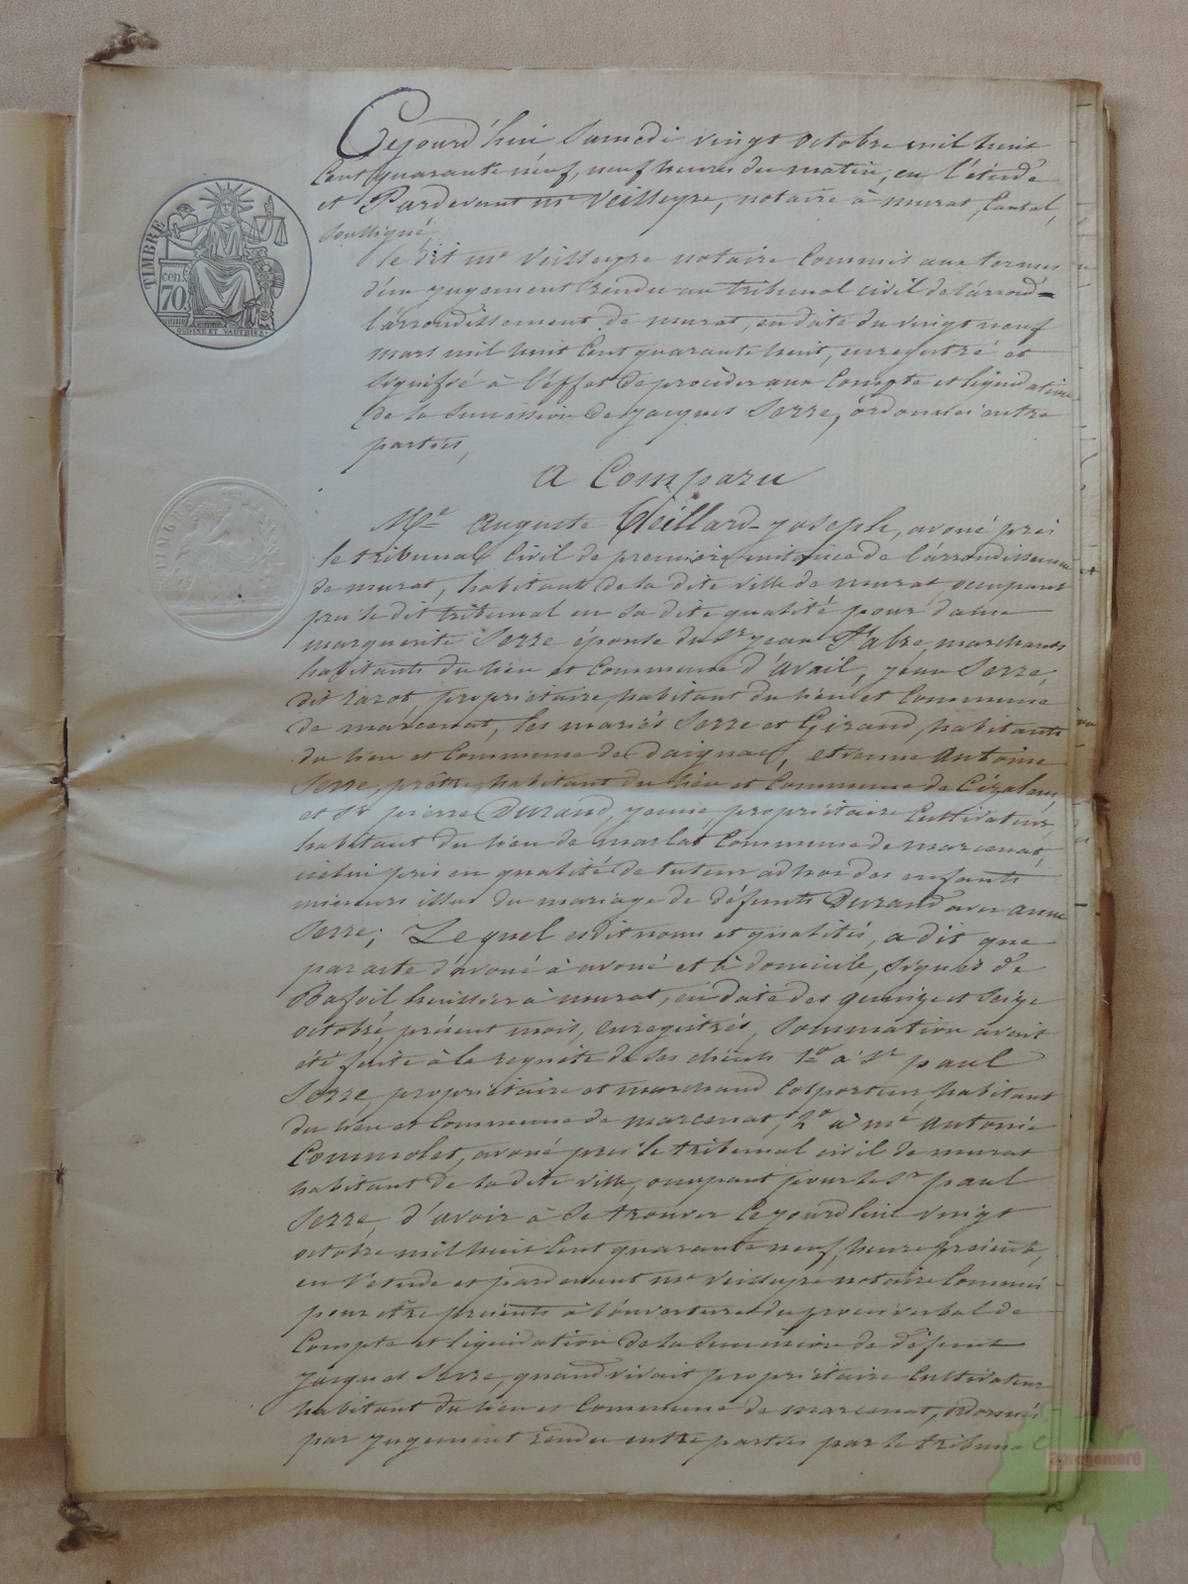 Cejourd'hui Samedi vingt octobre mil huit
Cent quarante neuf, neuf heures du matin, en l'étude
et Pardevant me Veisseyre, notaire à murat, Cantal,
soussigné;
le dit me Veisseyre notaire Commis aux termes
d'un jugement rendu au tribunal civil de l'arrond=
l'arrondissement de murat, en date du vingt neuf
mars mil huit Cent quarante huit, enregistré et
signifié à l'effet de procéder aux Compte et liquidation
de la succession de jacques Serre, ordonnés entre
parties,
A Comparu
Me Auguste Teillard-joseph, avoué près
le tribunal Civil de première instance de l'arrondissement
de murat, habitant de la dite ville de murat occupant
près le dit tribunal en sa dite qualité pour dame
marguerite Serre épouse du Sr jean Fabre, marchands
habitants du lieu et Commune d', jean Serre,
dit, propriétaire, habitant du lieu et Commune
de marcenat, les mariés Serre et Giraud, habitants
du lieu et Commune de, etienne Antoine
Serre, prêtre, habitant du lieu et Commune de
et Sr pierre Durand, jeune, propriétaire Cultivateur,
habitant du lieu de Commune de marcenat,
icelui pris en qualité de tuteur ad hoc des enfants
mineurs issus du mariage de défunts Durand avec anne
Serre; Lequel esdit noms et qualités, a dit que
par acte d'avoué à avoué et à domicile, signés de
huissier à murat, en date des quinze et seize
octobre, présent mois, enregistrés, Sommation avait
été faite à la requête de ses clients 1o à Sr paul
Serre, propriétaire et marchand Colporteur, habitant
du lieu et Commune de marcenat, 2o à me Antoine
Commolet, avoué près le tribunal civil de murat
habitant de la dite ville, occupant pour le Sr paul
Serre, d'avoir à se trouver Cejourd'hui vingt
octobre mil huit Cent quarante neuf, heure présente,
en l'étude et pardevant me Veisseyre notaire Commis
pour être présents à l'ouverture du procès verbal de
Compte et liquidation de la succession de défunt
jacques Serre, quand vivait propriétaire Cultivateur
habitant du lieu et Commune de marcenat, ordonnés
par jugement rendu entre parties par le tribunal
TIMBRE
cent
70
TIMBRE
aprogemere